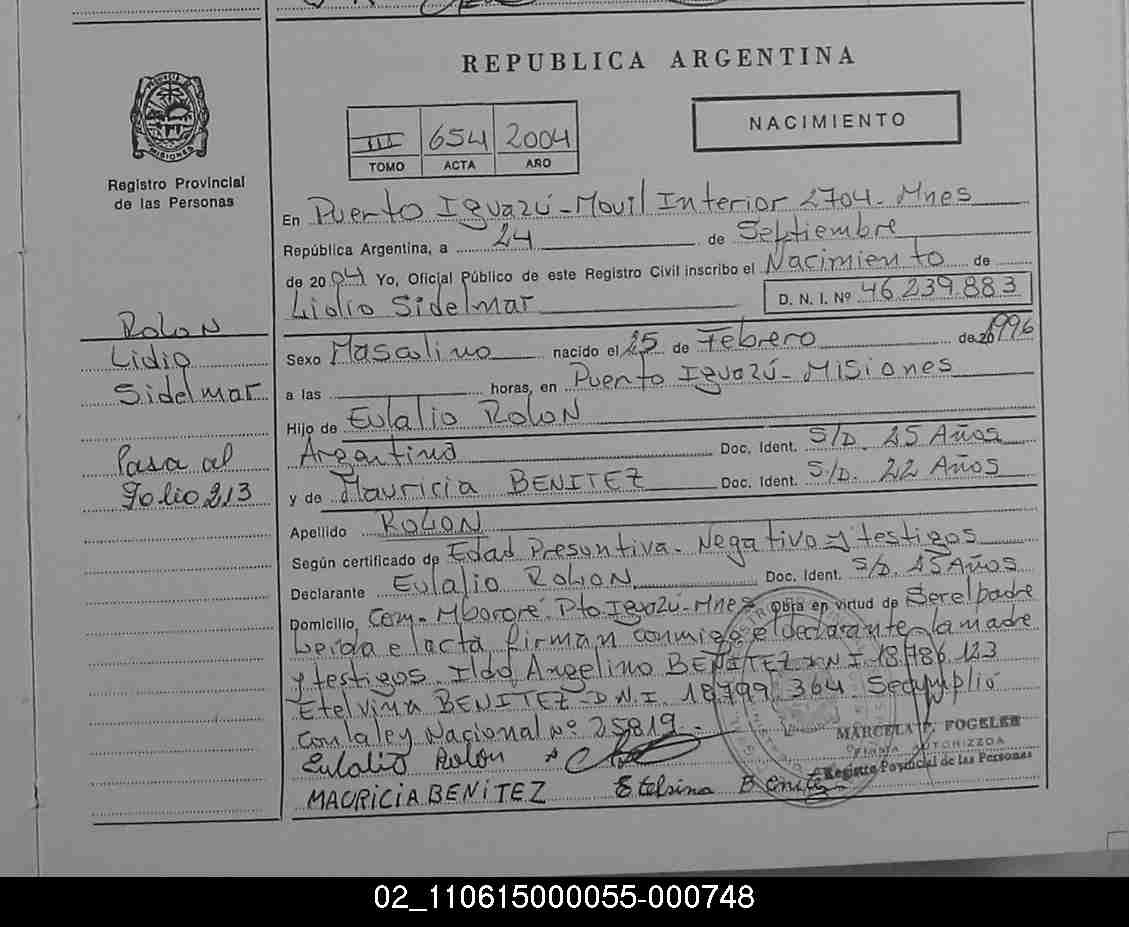 REPUBLICA ARGENTINA
PROVINCIA DE
MISIONES
Registro Provincial
de las Personas
III 654 2004
TOMO ACTA AÑO
NACIMIENTO
En Puerto Iguazú - Movil Interior 2704 - Mnes
República Argentina, a 24 de Septiembre
de 2004 Yo, Oficial Público de este Registro Civil inscribo el Nacimiento de
Lidio Sidelmar D. N. I. Nº 46.239.883
Rolon
Lidio
Sidelmar
Pasa al
folio 213
Sexo Masculino nacido el 25 de Febrero de 1996
a las horas, en Puerto Iguazú - Misiones
Hijo de Eulalio Rolon
Argentino Doc. Ident. S/D. 25 Años
y de Mauricia BENITEZ Doc. Ident. S/D. 22 Años
Apellido ROLON
Según certificado de Edad Presuntiva - Negativo y testigos
Declarante Eulalio ROLON Doc. Ident. S/D. 25 Años
Domicilio Com - Mbororé. Pto. Iguazú - Mnes Obra en virtud de Ser el padre
Leida el acta, firman conmigo el declarante la madre
y testigos. Ildo Angelino BENITEZ D.N.I. 18.786.123
Etelvina BENITEZ - D.N.I. 18.799.364. Se cumplió
con la ley Nacional Nº 25819 -
Eulalio Rolon
MAURICIA BENITEZ Etelvina Benitez
MARCELA F. FOGELER
FIRMA AUTORIZADA
Registro Provincial de las Personas
02_110615000055-000748